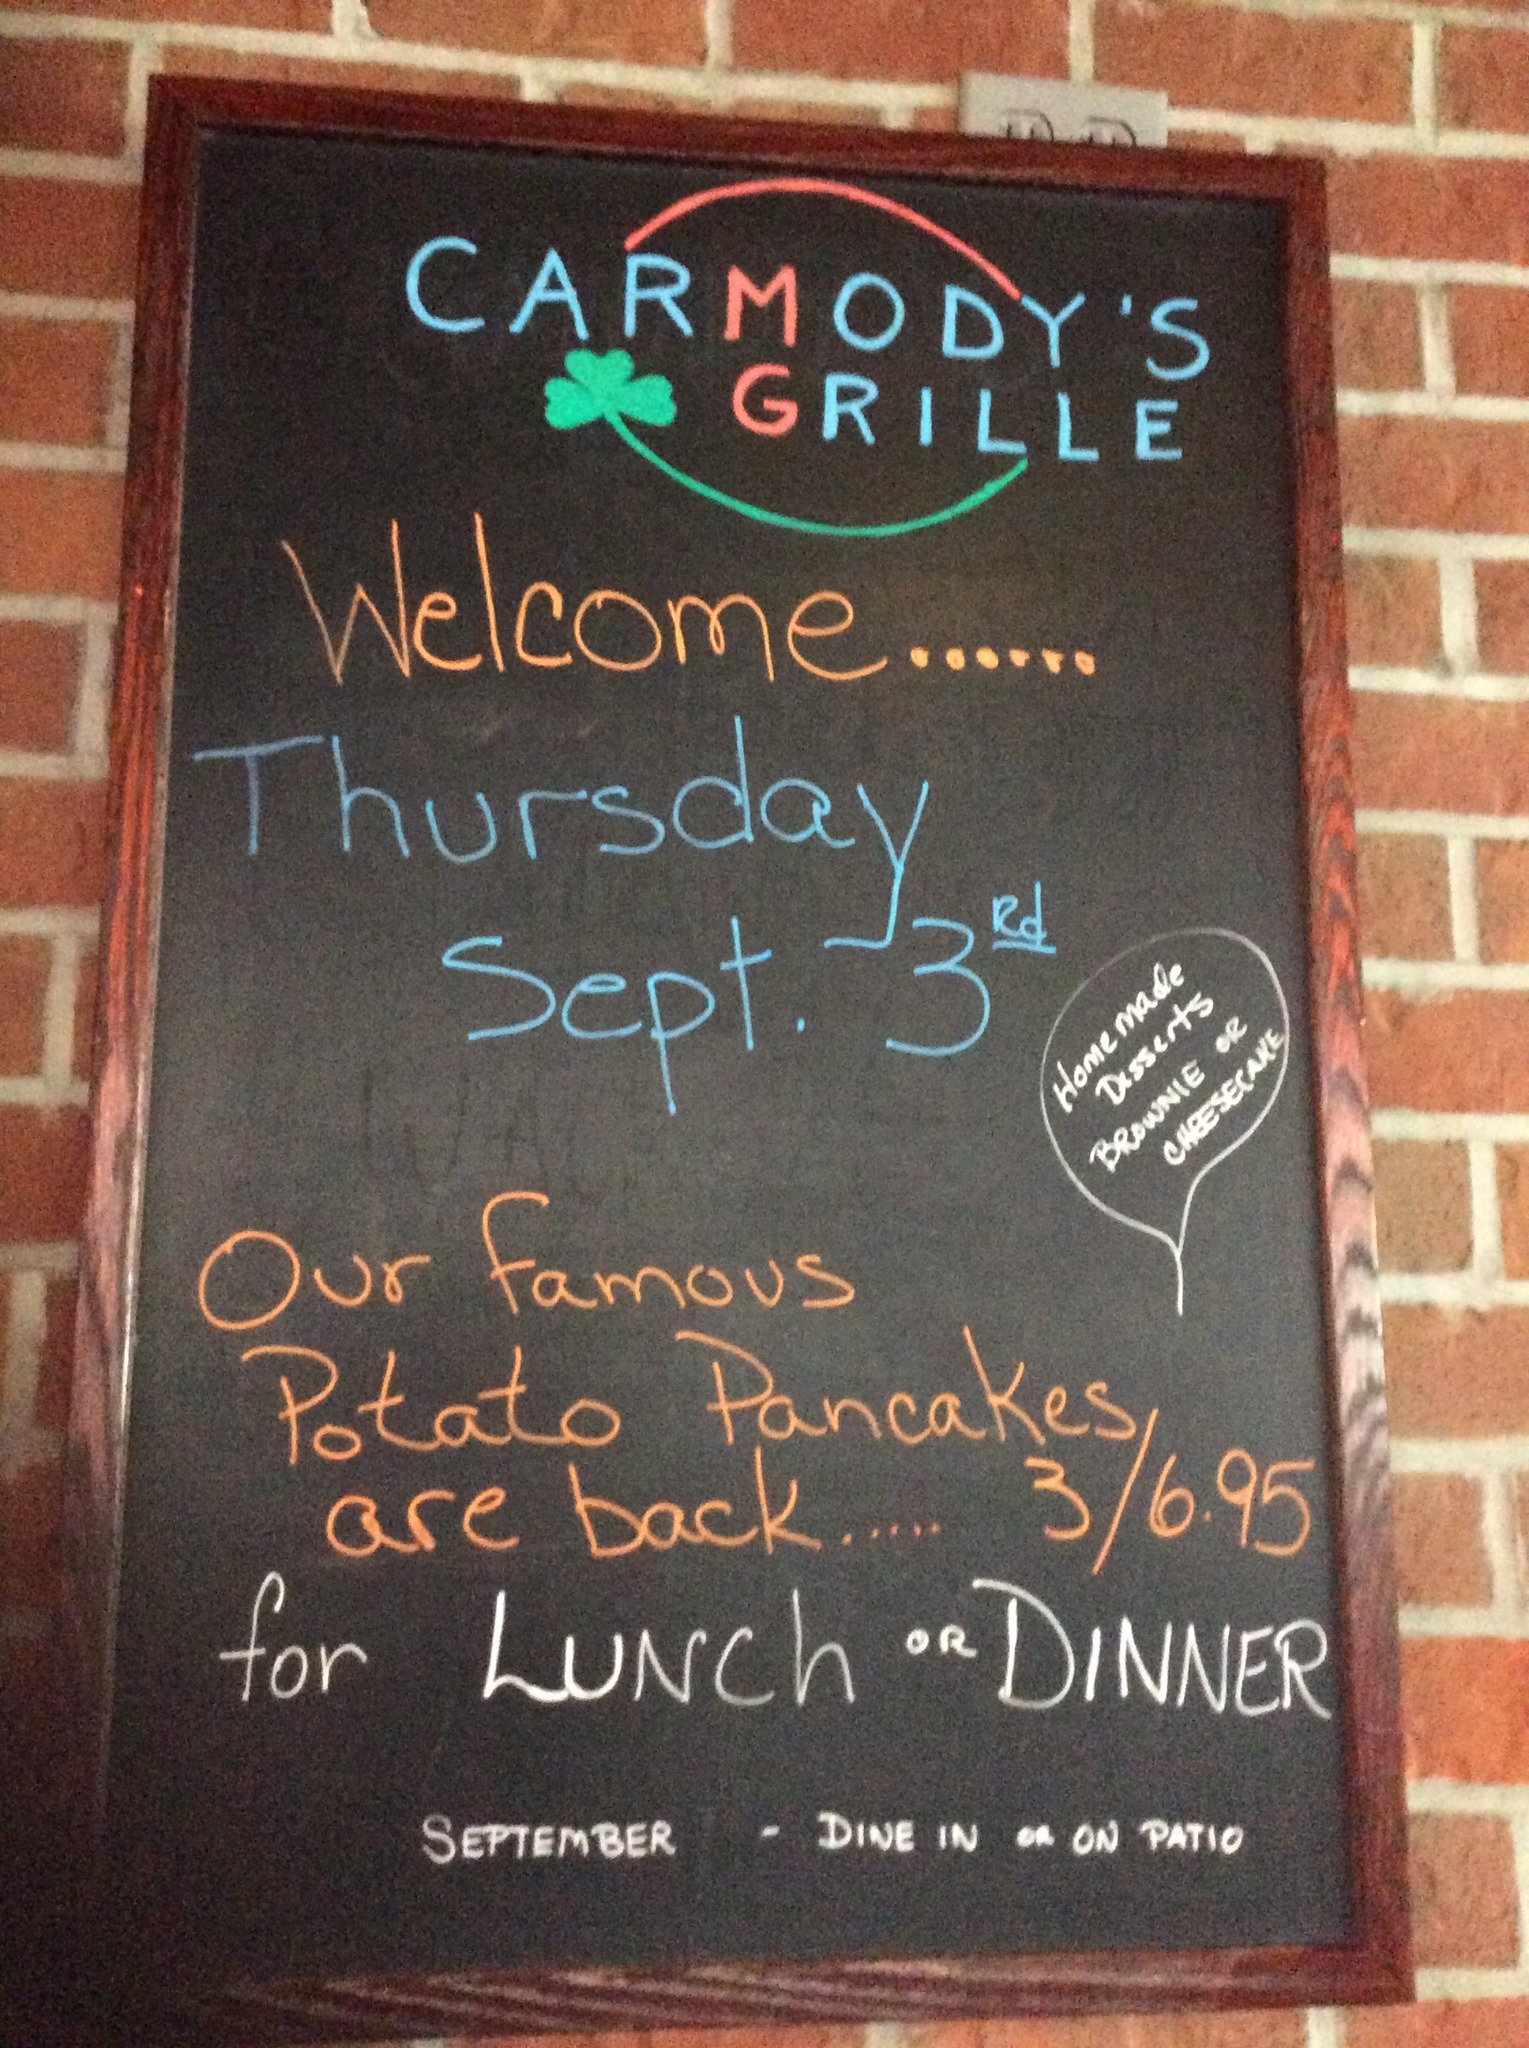 CARMODY'S
GRILLE
Welcome......
Thursday
Sept. 3Rd
Homemade
Disserts
BROWNIE OR
CHEESECAKE
Our famous
Potato Pancakes
are back..... 3/6.95
for LUNCh OR DINNER
SEPTEMBER - DINE IN OR ON PATIO